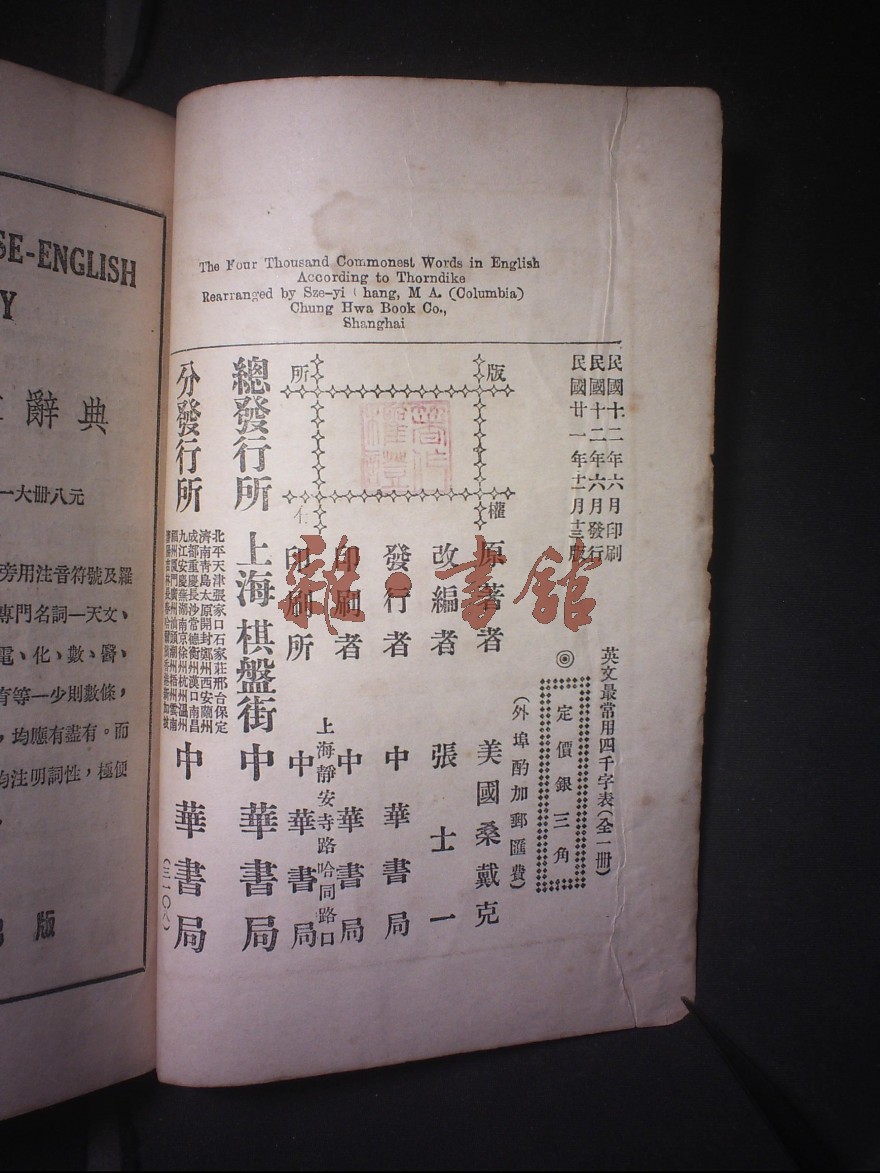 SE-ENGLISH
Y
辭典
一大冊八元
旁用注音符號及羅
專門名詞—天文、
電、化、數、醫、
育等—少則數條，
，均應有盡有。而
均注明詞性，極便
版
The Four Thousand Commonest Words in English
According to Thorndike
Rearranged by Sze-yi hang, M A. (Columbia)
Chung Hwa Book Co.,
Shanghai
民國十二年六月印刷
民國十二年六月發行
民國廿一年十一月十三版
英文最常用四千字表(全一冊)
◎定價銀三角
(外埠酌加郵匯費)
版權所有
原著者 美國桑戴克
改編者 張士一
發行者 中華書局
印刷者 中華書局
上海靜安寺路哈同路口
印刷所 中華書局
總發行所 上海棋盤街 中華書局
分發行所
北平天津張家口石家莊邢台保定
濟南青島太原開封鄭州西安蘭州
成都重慶長沙常德衡州漢口南昌
九江安慶蕪湖南京徐州杭州溫州
中華書局
(三一〇八)
雜·書館